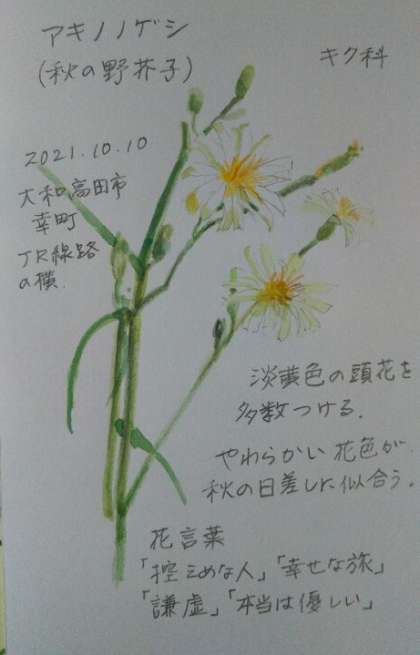 アキノノゲシ
(秋の野芥子)
キク科
2021.10.10
大和高田市
幸町
JR線路
の横.
淡黄色の頭花を
多数つける.
やわらかい花色が
秋の日差しに似合う。
花言葉
「控えめな人」「幸せな旅」
「謙虚」「本当は優しい」